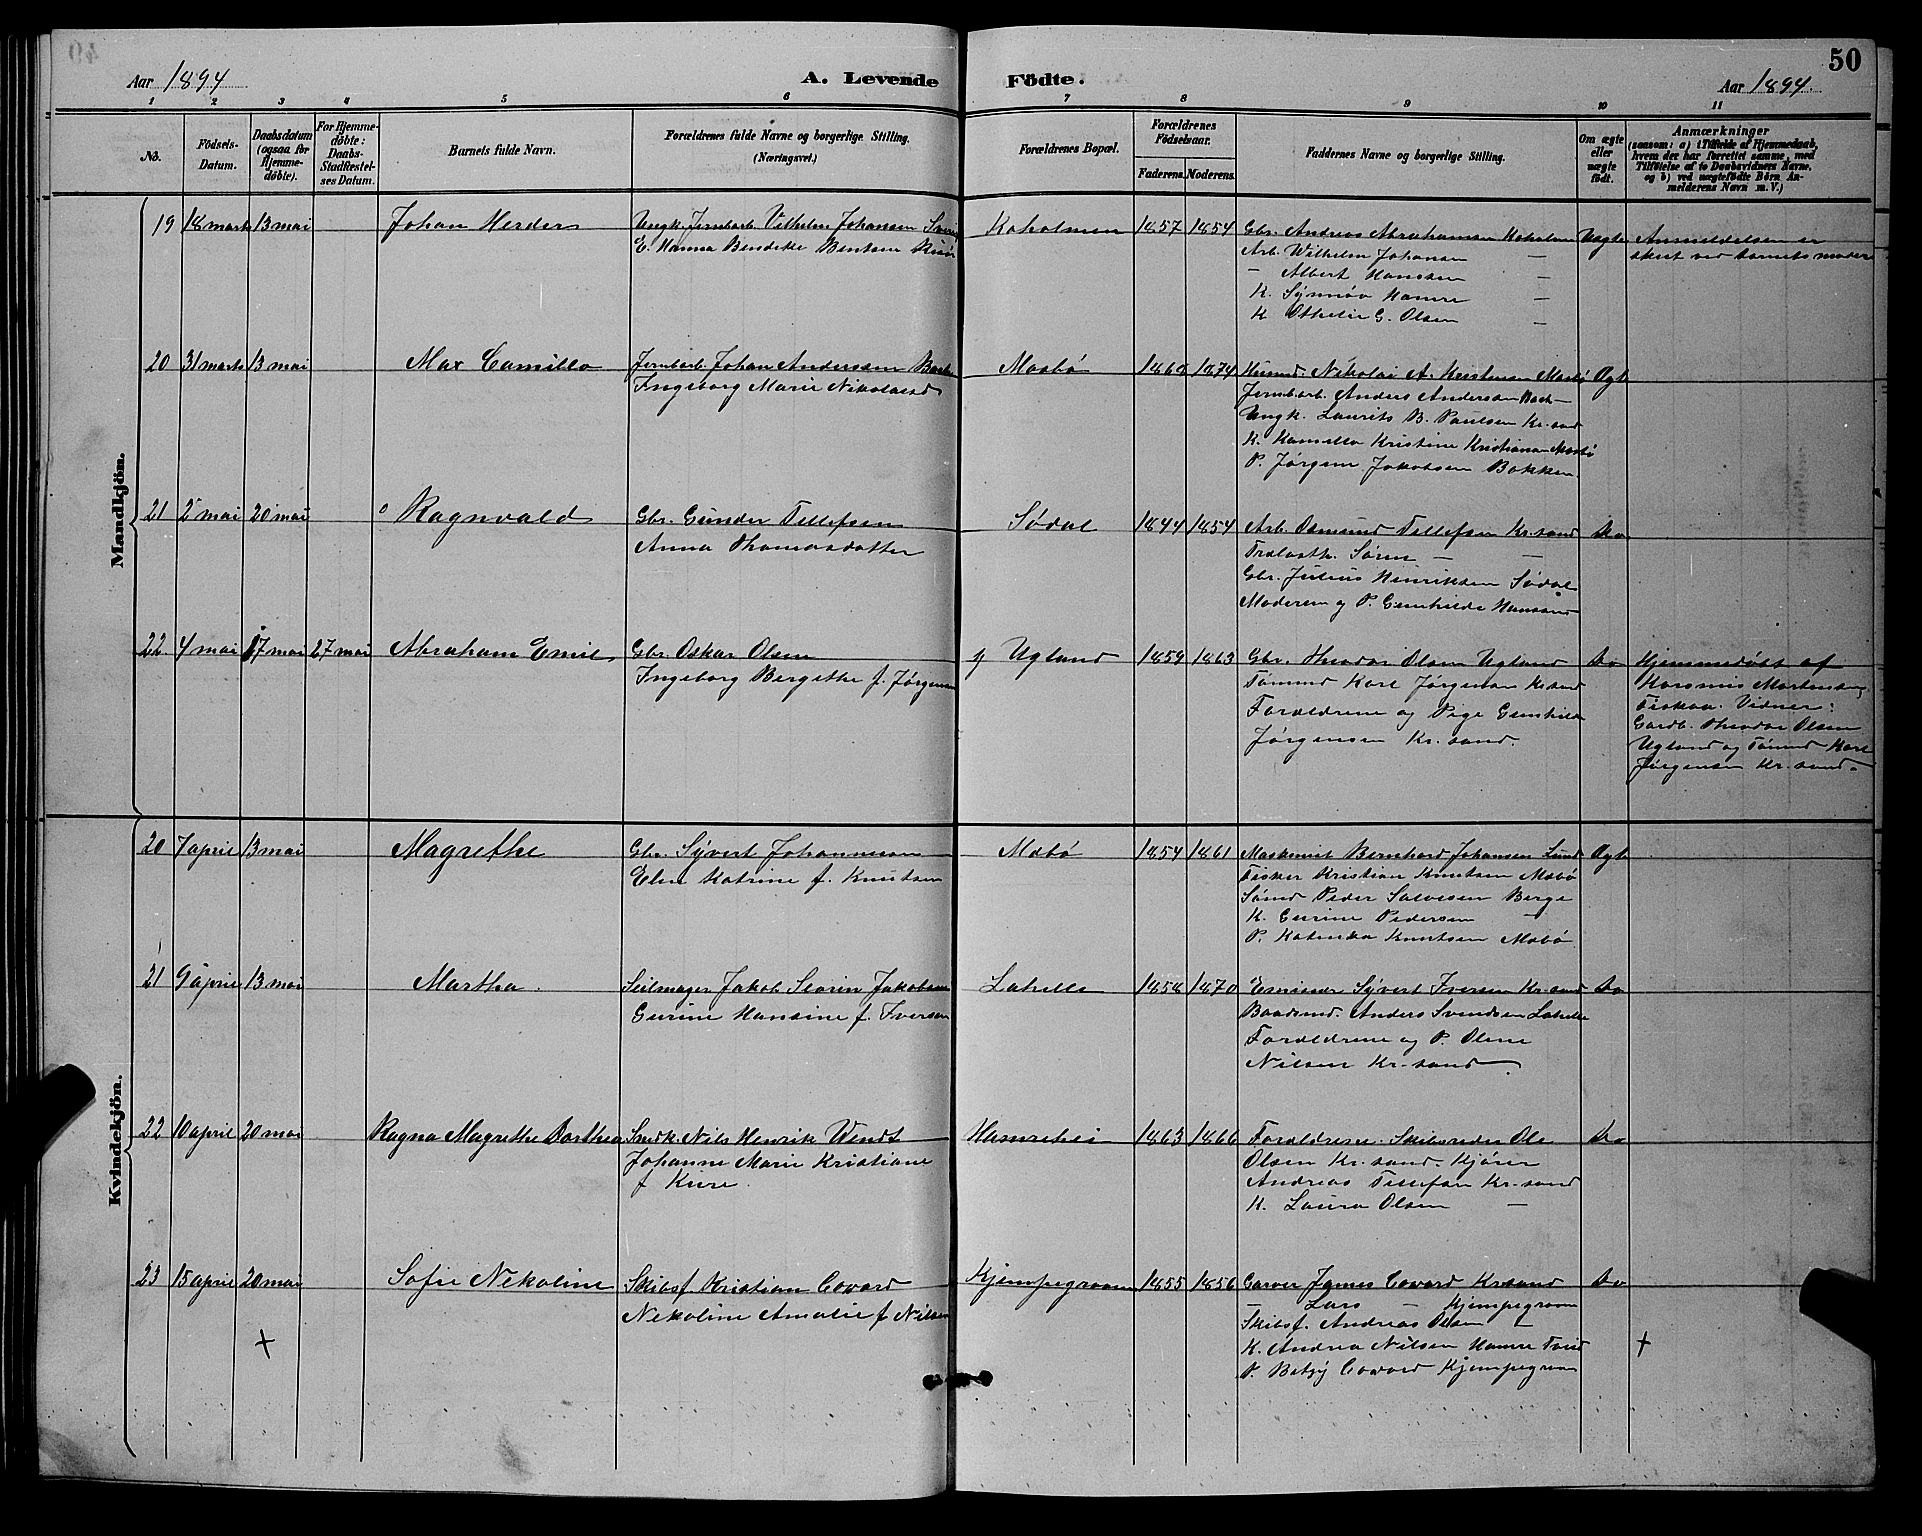 50
Aar 1894 A. Levende Födte. Aar 1894.
1 2 3 4 5 6 7 8 9 10 11
No.
Födsels-
Datum.
Daabsdatum
(ogsaa for
Hjemme-
döbte).
For Hjemme-
döbte:
Daabs-
Stadfæstel-
ses Datum.
Barnets fulde Navn.
Forældrenes fulde Navne og borgerlige Stilling.
(Næringsvei.)
Forældrenes Bopæl.
Forældrenes
Födselsaar.
Faderens. Moderens.
Faddernes Navne og borgerlige Stilling.
Om ægte
eller
uægte
født.
Anmærkninger
(saasom: a) i Tilfælde af Hjemmedaab,
hvem der har forrettet samme, med
Tilföielse af to Daabsvidners Navne,
og b) ved uægtefödte Börn An-
melderens Navn m. V.)
Mandkjön.
19 18 marts 13 mai Johan Herder
Ungk. Jernbarb. Vilhelm Johansen
E. Hanna Bendikte Bentsen
Koholmen 1857 1854
Gbr. Andreas Abrahamsen Koholmen
Arb. Wilhelm Johansen —
— Albert Hansen —
K. Synnøv Hamre —
K Othelie G. Olsen —
Uægte
Anmeldelsen er
skeet ved barnets moder
20 31 marts 13 mai Max Camillo
Jernbarb. Johan Anderssen
Ingeborg Marie Nikolaisd
Mosbø 1860 1874
Husmd. Nikolai A. Kristensen Mosbø
Jernbarb. Anders Andersen Bach —
Ungk. Laurits B. Paulsen Kr.sand
K. Kamilla Kristine Kristiansen Mosbø
P. Jørgine Jakobsen Bakken
Ægt
21 2 mai 20 mai Ragnvald
Gbr. Gunder Tellefsen
Anna Thomasdatter
Sødal 1844 1854
Arb. Osmund Tellefsen Kr.sand
Sören — —
Gbr. Julius Henriksen Sødal
Moderen og P. Gunhilde Hansen
Do
22 4 mai 17 mai 27 mai Abraham Emil
Gbr. Oskar Olsen
Ingeborg Bergithe f. Jørgensen
Ugland 1859 1863
Gbr. Theodor Olsen Ugland
Tømmd Karl Jørgensen Kr.sand
Forældrene og Pige Gunhilde
Jørgensen Kr.sand.
Do
Hjemmedøbt af
Mortensen,
Fiskaa. Vidner:
Gardb. Theodor Olsen
Ugland og Tömmd Karl
Jørgensen Kr.sand.
Kvindekjön.
20 7 april 13 mai Magrethe
Gbr. Syvert Johannesen
Elen Katrine f. Knutsen
Mobø 1854 1861
Maskinist Bernhard Johansen Lund
Fisker Kristian Knutsen Mobø
Sømd Peder Salvesen Berge
K. Gurine Pedersen —
P. Katinka Knutsen Mobø
Ægt
21 9 april 13 mai Martha.
Seilmager Jakob Severin Jakobsen
Gurine Hansine f. Iversen
Lahelle 1858 1870
Syvert Iversen Kr.sand
Baadsmd. Anders Svendsen Lahelle
Forældrene og P. Oline
Nilsen Kr.sand.
Do
22 10 april 20 mai Ragna Magrethe Dorthea
Snedk. Nils Henrik Wendt
Johanne Marie Kristiane
f
Hamrehei 1863 1866
Forældrene. Skibsreder Ole
Olsen Kr.sand. Kjører
Andreas Tellefsen Kr.sand
K. Laura Olsen —
Do
23 15 april 20 mai Sofie Nekoline
Skibsf. Kristian Coward
Nekoline Amalie f Nilsen
Kjempegroven 1855 1856
Garver James Coward Kr.sand
— Lars — Kjempegroven
Skibsf. Andreas Olsen —
K. Andrea Nilsen Hamre Tveid
P. Betzy Coward Kjempegroven
Do
+ +